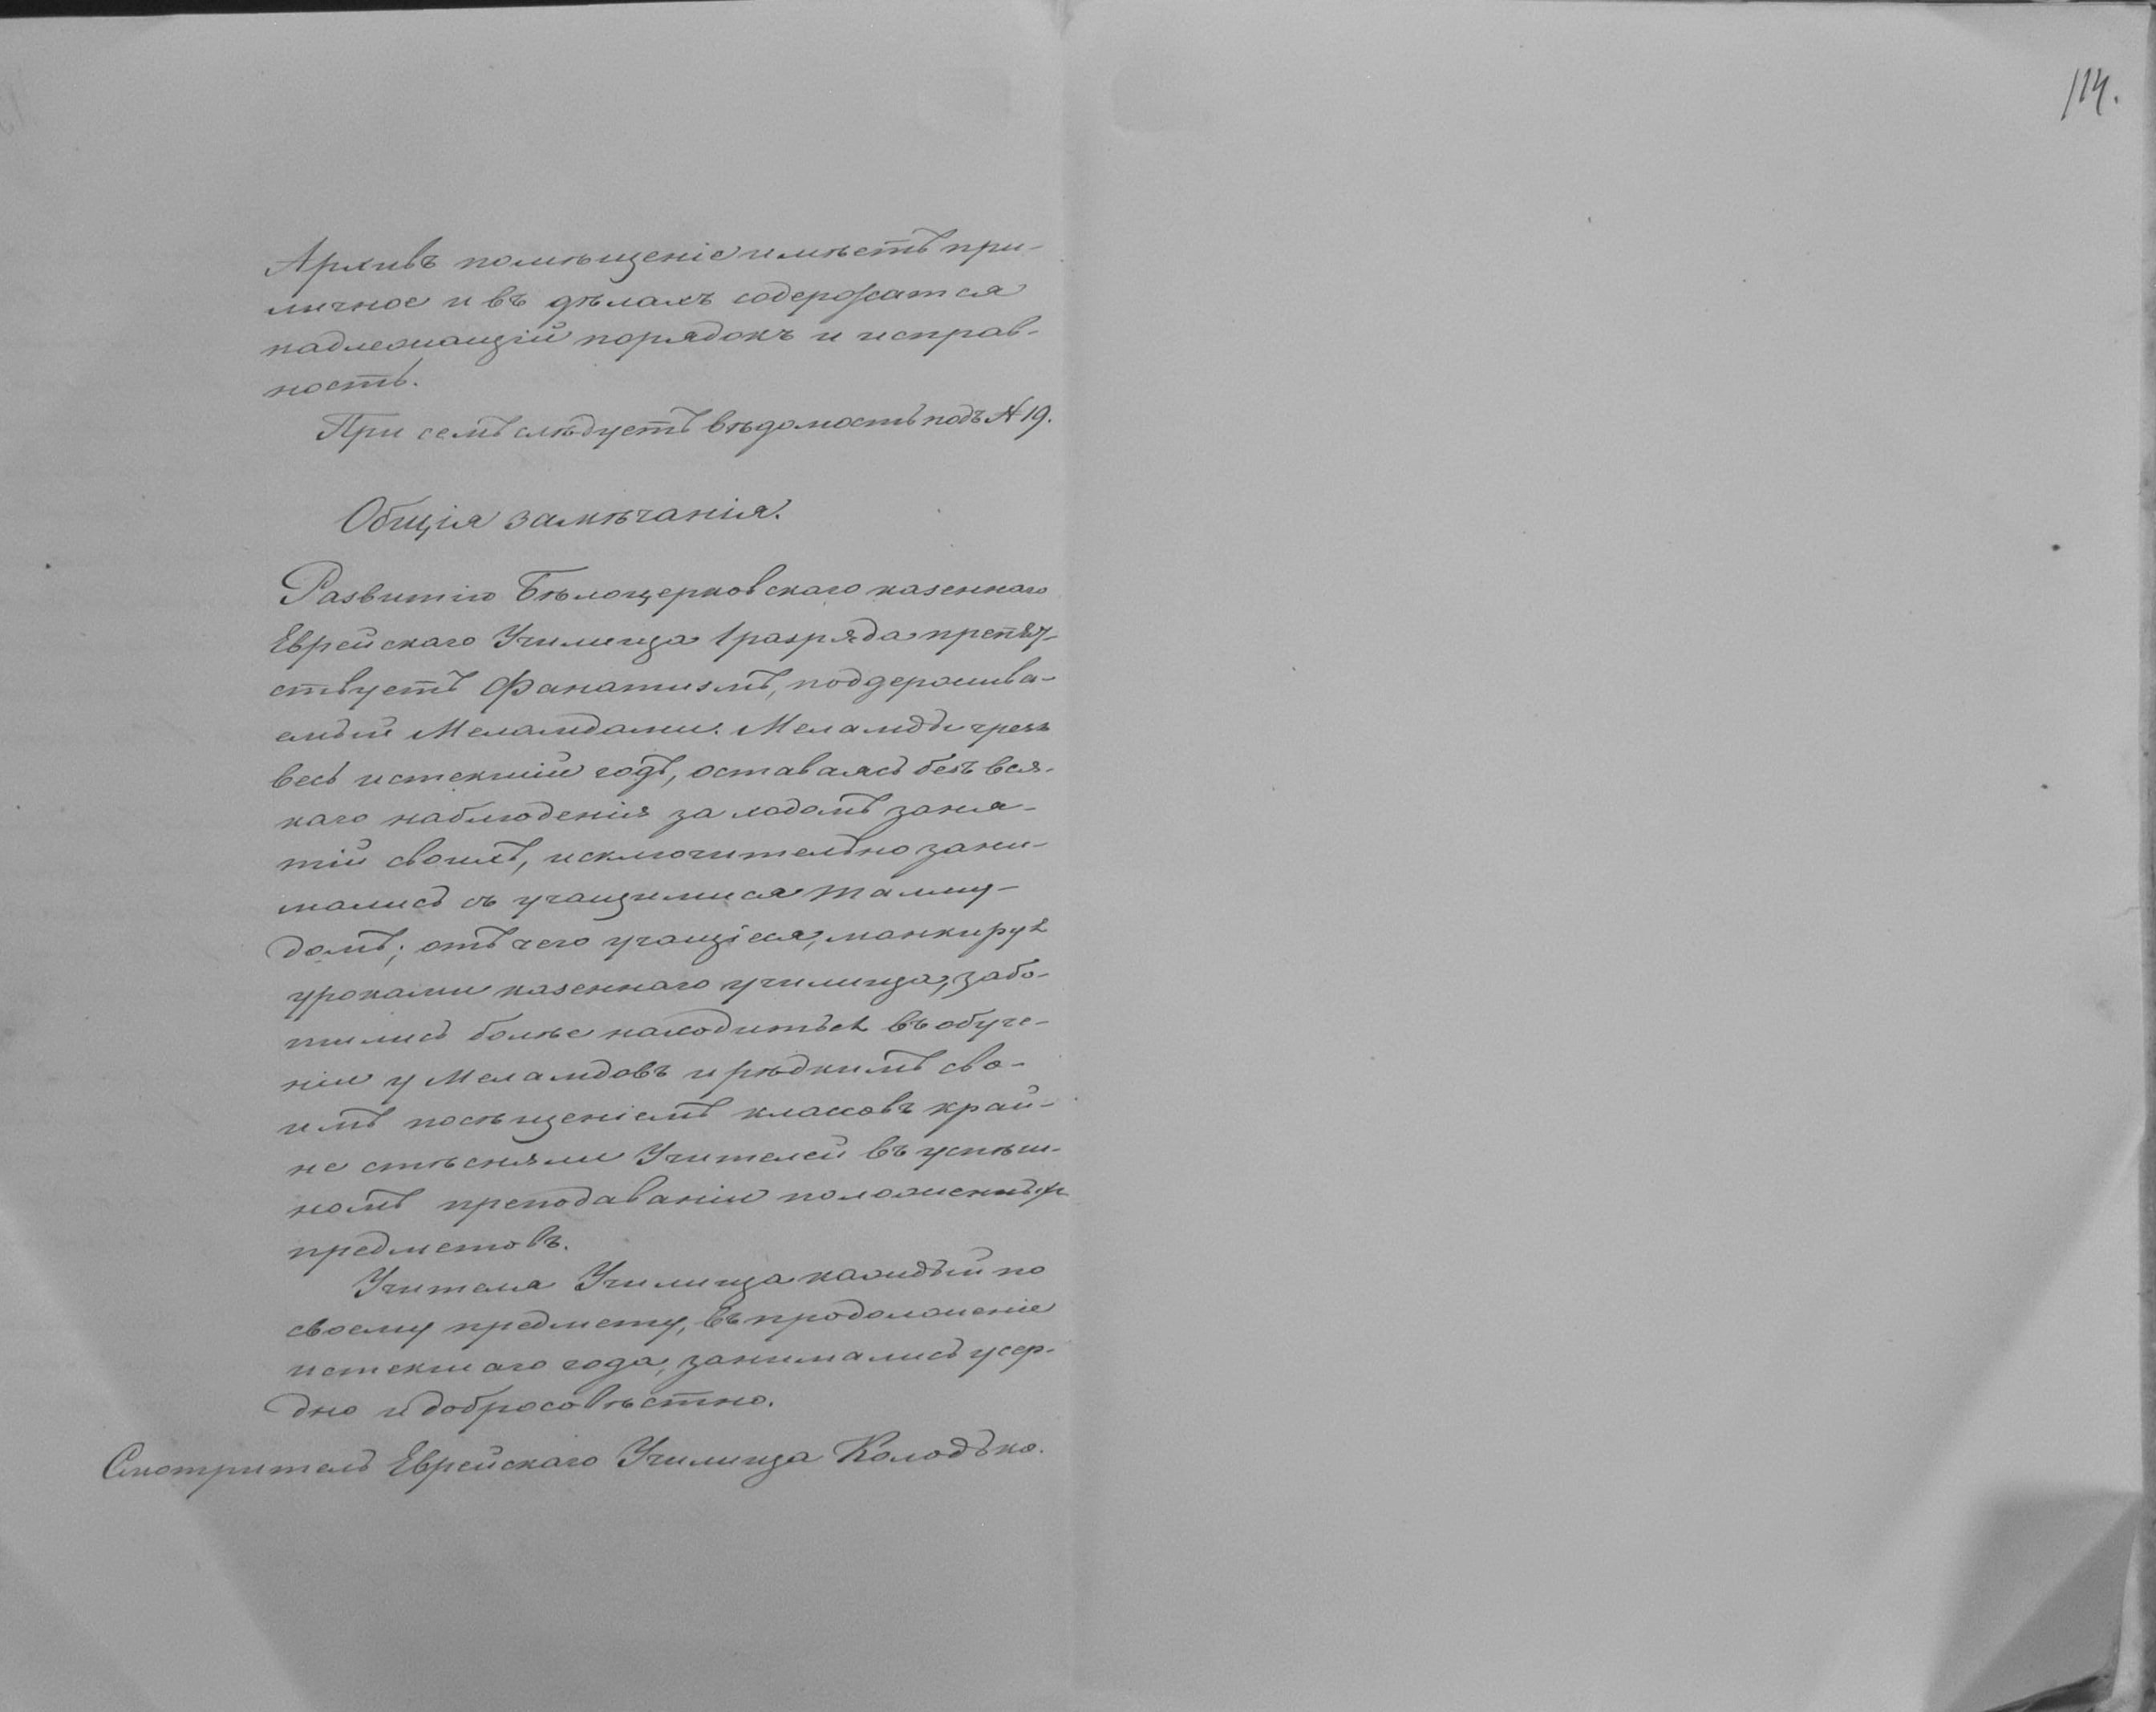 114.
Архивъ помѣщеніе имѣетъ при-
личное и въ дѣлахъ содержатся
надлежащій порядокъ и исправ-
ность.
При семъ слѣдуетъ вѣдомость подъ № 19.
Общія замѣчанія.
Развитію Бѣлоцерковскаго казеннаго
Еврейскаго Училища 1 разряда препят-
ствуетъ Фанатизмъ, поддержива-
емый Меламдами. Меламды чрезъ
весь истекшій годъ, оставаясь безъ вся-
каго наблюденія за ходомъ заня-
тій своихъ, исключительно зани-
мались съ учащимися талму-
домъ; отъ чего учащіеся, манкируя
уроками казеннаго училища, забо-
тились болѣе находиться въ обуче-
ніи у Меламдовъ и рѣдкимъ сво-
имъ посѣщеніемъ классовъ край-
не стѣсняли Учителей въ успѣш-
номъ преподаваніи положенныхъ
предметовъ.
Учителя Училища каждый по
своему предмету, въ продолженіе
истекшаго года, занимались усер-
дно и добросовѣстно.
Смотритель Еврейскаго Училища Колодько.